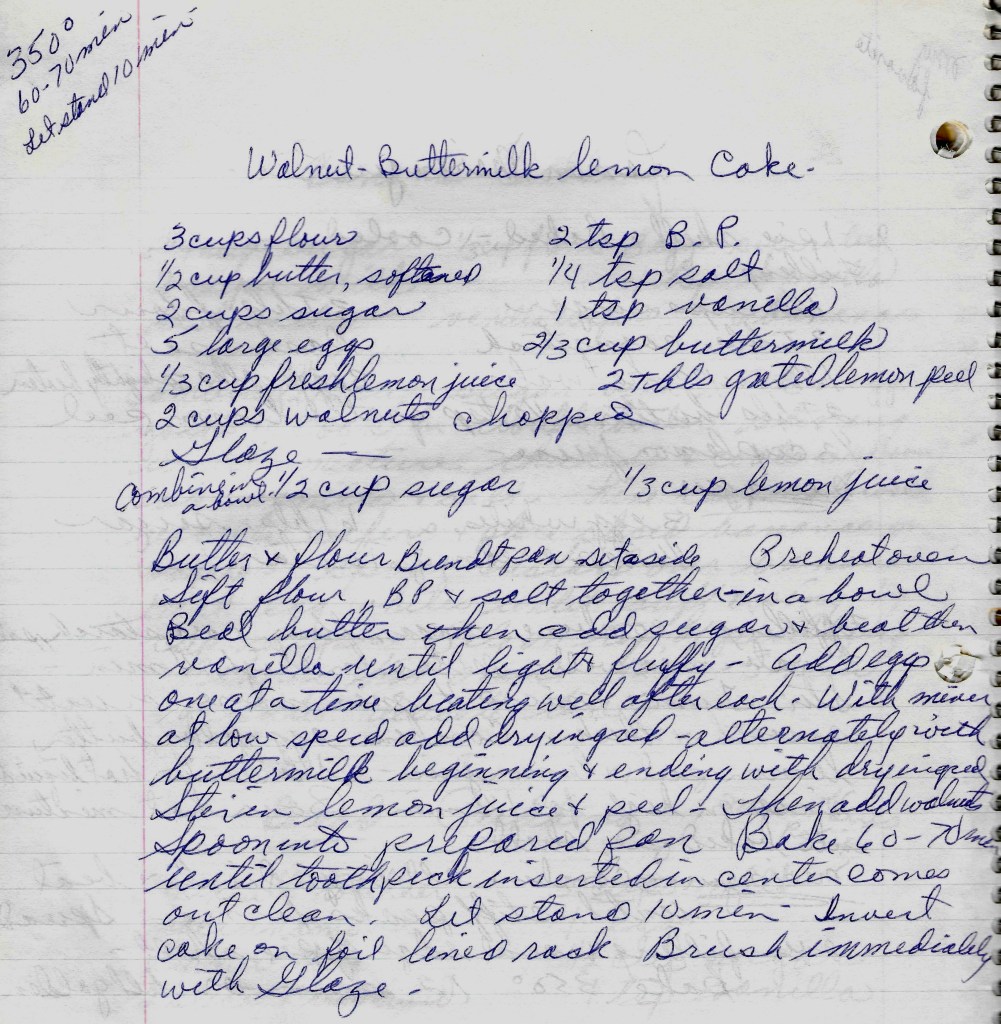 350°
60-70 min
Let stand 10 min
my
favorite
Walnut-Buttermilk lemon Cake.
3 cups flour 2 tsp B.P.
1/2 cup butter, softened 1/4 tsp salt
2 cups sugar 1 tsp vanilla
5 large eggs 2/3 cup buttermilk
1/3 cup fresh lemon juice 2 Tbls grated lemon peel
2 cups walnuts chopped
Glaze —
Combine in a bowl. 1/2 cup sugar 1/3 cup lemon juice
Butter & flour Bundt pan set aside Preheat oven
Sift flour, BP & salt together - in a bowl
Beat butter then add sugar & beat then
vanilla until light & fluffy - Add eggs
one at a time beating well after each. With mixer
at low speed add dry ingred - alternately with
buttermilk beginning & ending with dry ingred
Stir in lemon juice & peel - Then add walnuts
Spoon into prepared pan Bake 60-70 min
until toothpick inserted in center comes
out clean. Let stand 10 min - Invert
cake on foil lined rack Brush immediately
with Glaze -